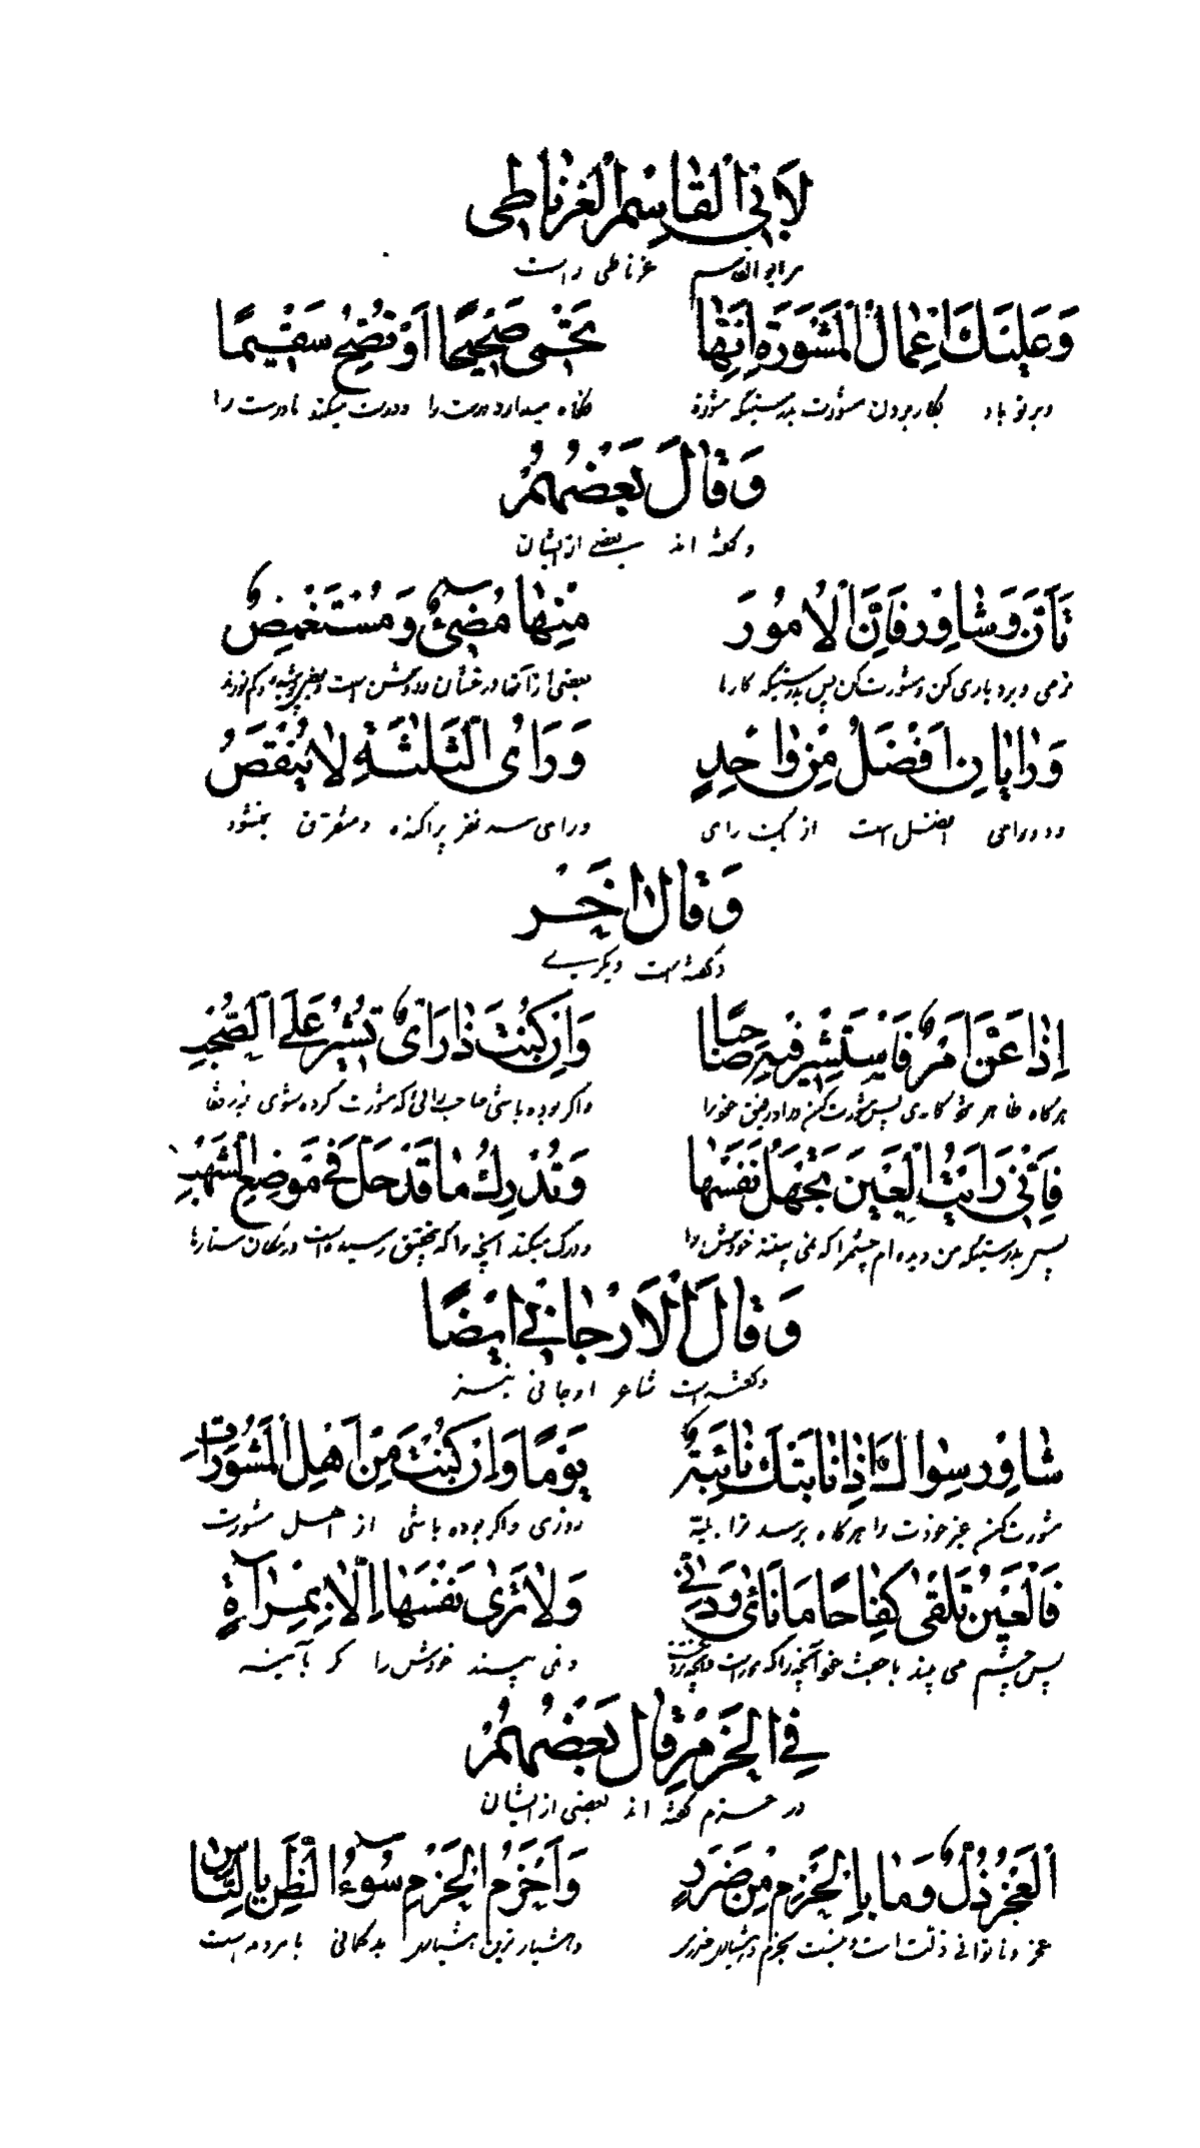 لِأَبِي الْقَاسِمِ الْغَرْنَاطِي
مر ابو القاسم غرناطی راست
وَعَلَيْكَ اِعْمَالَ الْمَشْوَرَةِ اِنَّهَا تَحْمِي صَحِيحًا اَوْ تُصِحُّ سَقِيمًا
و بر تو باد بکار بردن مشورت بدرستیکه مشورة نگاه میدارد درست را و درست میکند نادرست را
وَقَالَ بَعْضُهُمْ
و گفته اند بعضے از ایشان
تَأَنَّ وَشَاوِرْ فَاِنَّ الْاُمُورَ مِنْهَا مُضِيءٌ وَمُسْتَغْمِضٌ
نرمی و بردباری کن و مشورت کن پس بدرستیکه کارها بعضی از آنها درخشان و روشن است و بعضی پوشیده و کم نورند
وَرَايَانِ اَفْضَلُ مِنْ وَاحِدٍ وَرَايُ الثَّلٰثَةِ لَا يُنْقَصُ
و دو رای افضل است از یک رای و رای سه نفر پراکنده و متفرق نمیشود
وَقَالَ اٰخَرُ
و گفته است دیگرے
اِذَا عَنَّ اَمْرٌ فَاسْتَشِرْ فِيهِ صَاحِبًا وَاِنْ كُنْتَ ذَا رَايٍ تُشِيرُ عَلَى الصَّحْبِ
هرگاه ظاهر شود کاری پس مشورت کن در او رفیق خود را و اگر بوده باشی صاحب رائی که مشورت کرده شوی نزد رفقا
فَاِنِّي رَاَيْتُ الْعَيْنَ تَجْهَلُ نَفْسَهَا وَتُدْرِكُ مَا قَدْ حَلَّ فِي مَوْضِعِ الشُّهْبِ
پس بدرستیکه من دیده ام چشم را که نمی بیند خودش را و درک میکند آنچه را که بتحقیق رسیده است در مکان ستارها
وَقَالَ الْاَرْجَانِي اَيْضًا
و گفته است شاعر ارجانی نیز
شَاوِرْ سِوَاكَ اِذَا نَابَتْكَ نَائِبَةٌ يَوْمًا وَاِنْ كُنْتَ مِنْ اَهْلِ الْمَشُورَاتِ
مشورت کن غیر خودت را هرگاه برسد ترا بلیة روزی و اگر بوده باشی از اهل مشورت
فَالْعَيْنُ تَلْقٰى كِفَاحًا مَا نَاٰى وَدَنٰى وَلَا تَرٰى نَفْسَهَا اِلَّا بِمِرْآةٍ
پس چشم می بیند آنچه را که دور است و نمی بیند خودش را مگر بآینه
فِي الْحَزْمِ قَالَ بَعْضُهُمْ
در حزم گفته اند بعضی از ایشان
اَلْعَجْزُ ذُلٌّ وَمَا بِالْحَزْمِ مِنْ ضَرَرٍ وَاَحْزَمُ الْحَزْمِ سُوٓءُ الظَّنِّ بِالنَّاسِ
عجز و ناتوانی ذلت است و نیست بحزم و هشیاری ضرری و هشیار ترین هشیاری بدگمانی با مردم است